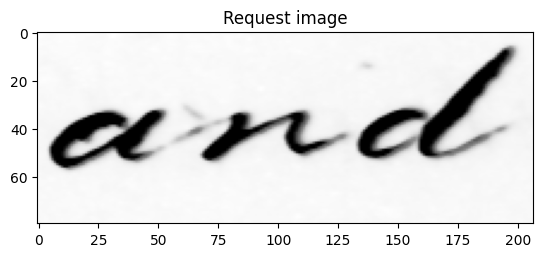 Request image
0
20
40
60
and
0 25 50 75 100 125 150 175 200